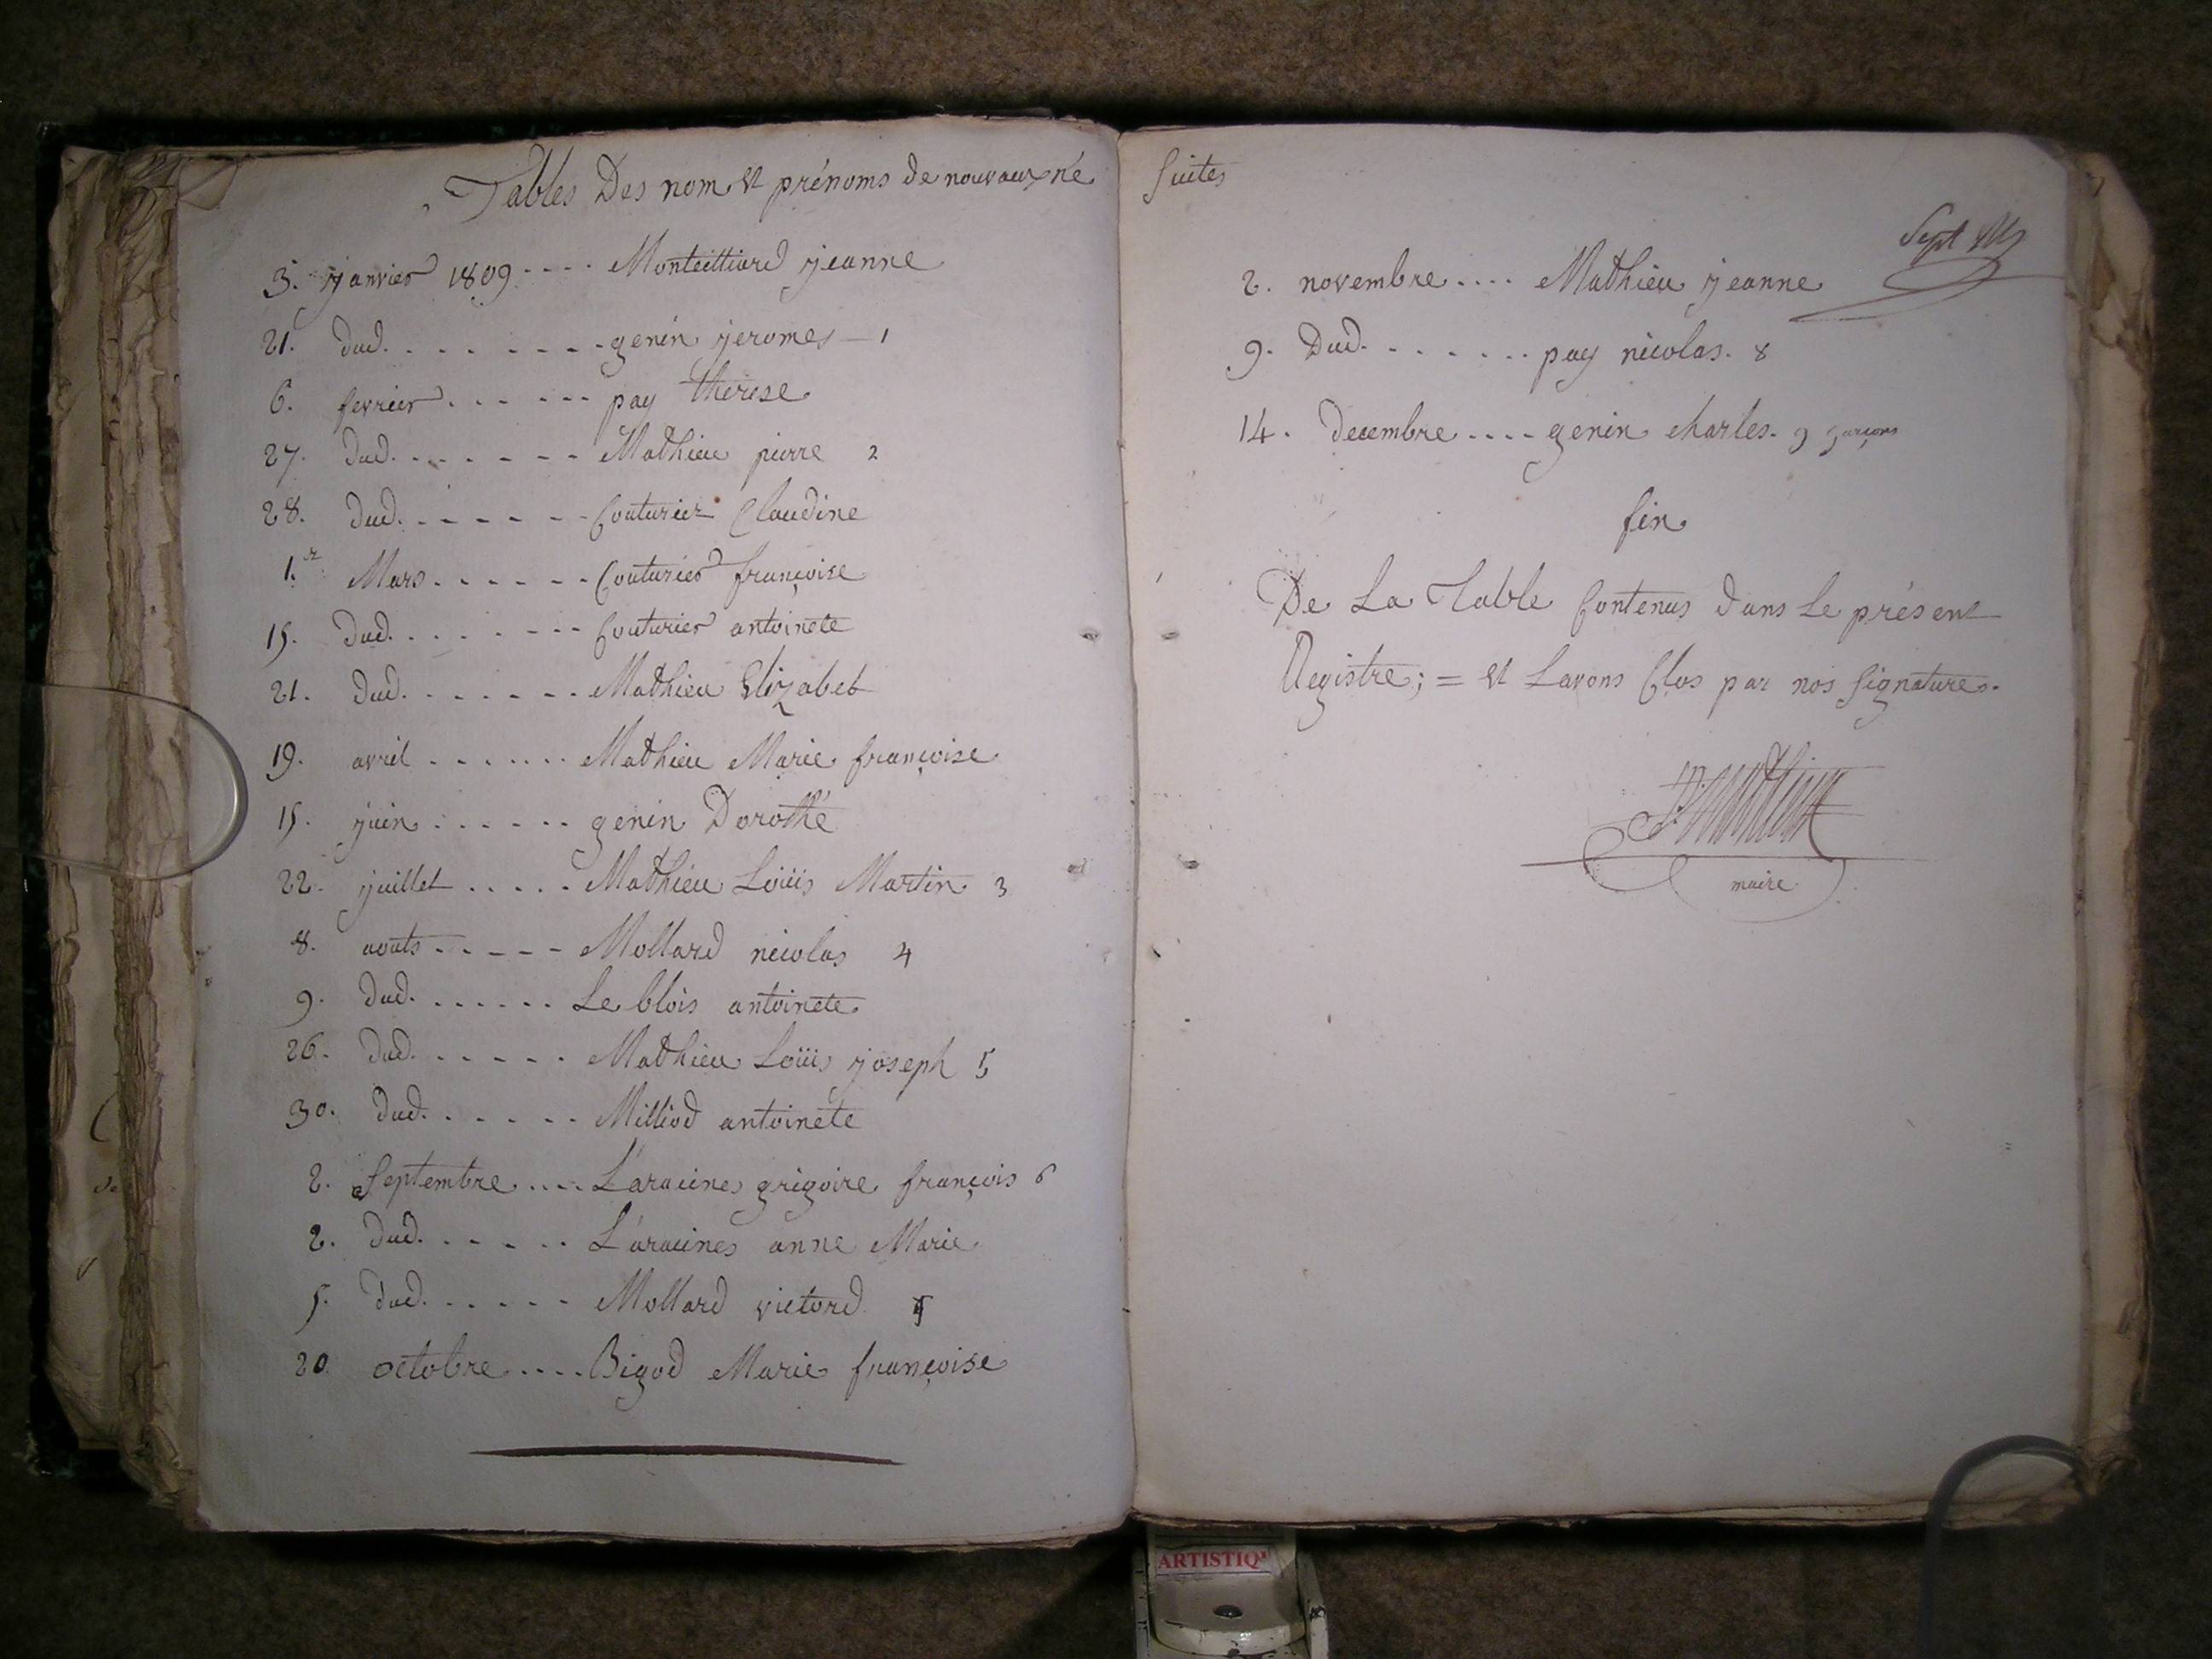 Tables Des nom et prénoms de nouvaux né
3. janvier 1809 .... Monteilliard jeanne
21. dud. ........ genin jeromes — 1
6. fevrier ...... pay therese
27. dud. ....... Mathieu pierre 2
28. dud. ....... Couturier Claudine
1.er Mars ...... Couturier françoise
15. dud. ........ Couturier antoinete
21. dud. ....... Mathieu Elizabet
19. avril ....... Mathieu Marie françoise
15. juin ...... genin Dorothé
22. juillet ..... Mathieu Loüis Martin 3
8. aouts ..... Mollard nicolas 4
9. dud. ...... Le blois antoinete
26. dud. ..... Mathieu Loüis joseph 5
30. dud. ..... Milliod antoinete
2. Septembre .... L'aracines grigoire françois 6
2. dud. ..... L'aracines anne Marie
5. dud. ..... Mollard victord
20. octobre .... Bigod Marie françoise
Suites
Sept
2. novembre .... Mathieu jeanne
9. Dud. ....... pay nicolas. 8
14. Decembre .... genin charles. 9 garçons
fin
De La Table Contenus dans Le présent
Registre; = et Lavons Clos par nos Signatures.
maire
ARTISTIQ